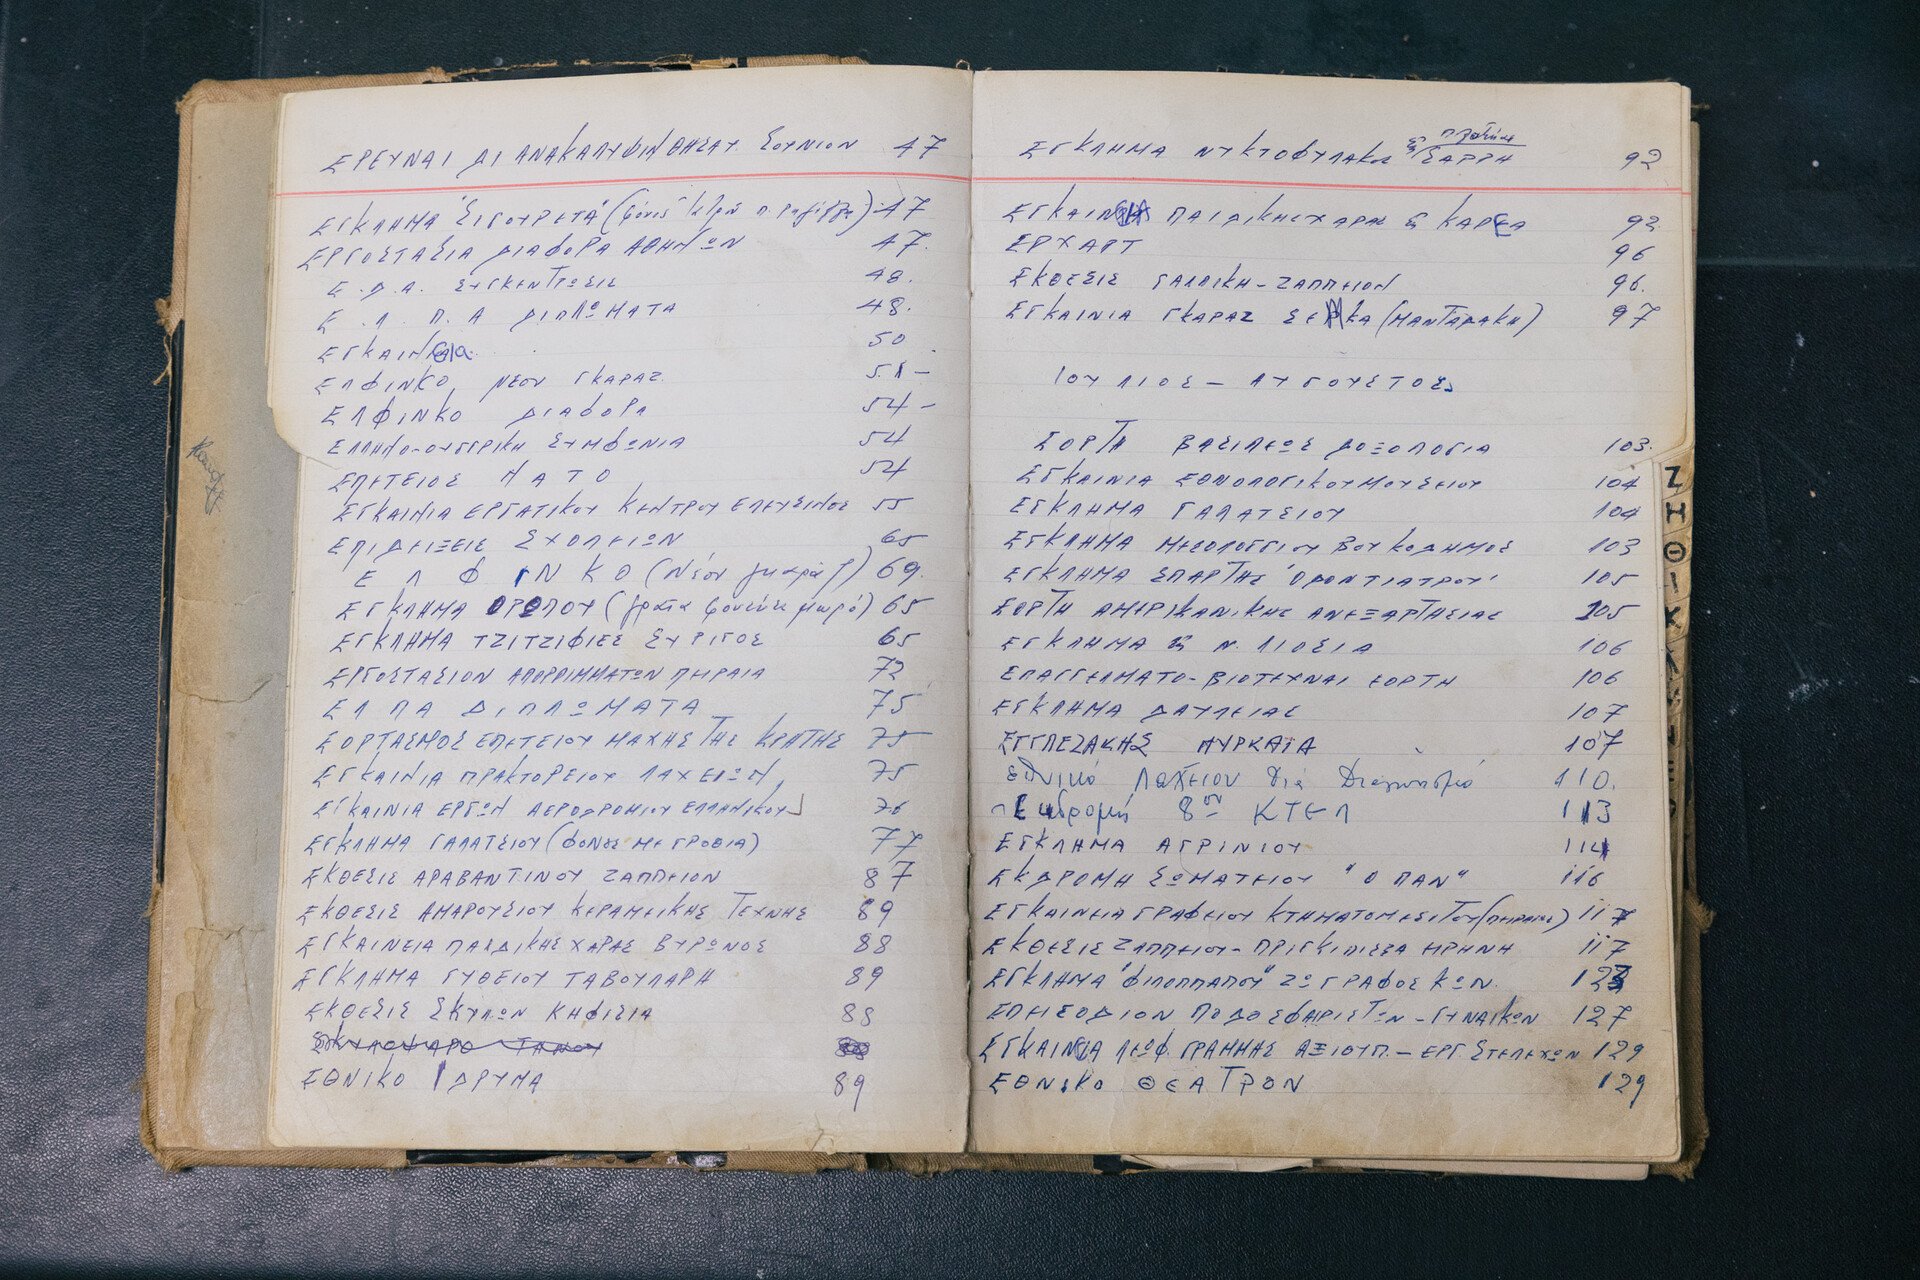 ΕΡΕΥΝΑΙ ΔΙ ΑΝΑΚΑΛΥΨΙΝ ΘΗΣΑΥ ΣΟΥΝΙΟΝ 47
ΕΓΚΛΗΜΑ "ΣΙΓΟΥΡΕΤΑ" 47
ΕΡΓΟΣΤΑΣΙΑ ΔΙΑΦΟΡΑ ΑΘΗΝΩΝ 47.
Ε.Δ.Α. ΣΥΓΚΕΝΤΡΩΣΙΣ 48.
Ε.Λ.Π.Α ΔΙΠΛΩΜΑΤΑ 48.
50
ΕΛΦΙΝΚΟ, ΝΕΟΝ ΓΚΑΡΑΖ. 51-
ΕΛΦΙΝΚΟ ΔΙΑΦΟΡΑ 54-
ΕΛΛΗΝΟ-ΟΥΓΓΡΙΚΗ ΣΥΜΦΩΝΙΑ 54
ΕΠΕΤΕΙΟΣ ΝΑΤΟ 54
ΕΓΚΑΙΝΙΑ ΕΡΓΑΤΙΚΟΥ ΚΕΝΤΡΟΥ ΕΛΕΥΣΙΝΟΣ 55
ΕΠΙΔΕΙΞΕΙΣ ΣΧΟΛΕΙΩΝ 65
ΕΛΦΙΝΚΟ (Νέον γκαράζ) 69.
ΕΓΚΛΗΜΑ ΩΡΩΠΟΥ (γραία φονεύει μωρό) 65
ΕΓΚΛΗΜΑ ΤΖΙΤΖΙΦΙΕΣ ΣΥΡΙΓΟΣ 65
ΕΡΓΟΣΤΑΣΙΟΝ ΑΠΟΡΡΙΜΜΑΤΩΝ ΠΕΙΡΑΙΑ 72
ΕΛΠΑ ΔΙΠΛΩΜΑΤΑ 75
ΕΟΡΤΑΣΜΟΣ ΕΠΕΤΕΙΟΥ ΜΑΧΗΣ ΤΗΣ ΚΡΗΤΗΣ 75
ΕΓΚΑΙΝΙΑ ΠΡΑΚΤΟΡΕΙΟΥ ΛΑΧΕΙΩΝ 75
ΕΓΚΑΙΝΙΑ ΕΡΓΩΝ ΑΕΡΟΔΡΟΜΙΟΥ ΕΛΛΗΝΙΚΟΥ 76
ΕΓΚΛΗΜΑ ΓΑΛΑΤΣΙΟΥ (ΦΟΝΟΣ ΜΕ ΓΡΟΘΙΑ) 77
ΕΚΘΕΣΙΣ ΑΡΑΒΑΝΤΙΝΟΥ ΖΑΠΠΕΙΟΝ 87
ΕΚΘΕΣΙΣ ΑΜΑΡΟΥΣΙΟΥ ΚΕΡΑΜΕΙΚΗΣ ΤΕΧΝΗΣ 89
ΕΓΚΑΙΝΕΙΑ ΠΑΙΔΙΚΗΣ ΧΑΡΑΣ ΒΥΡΩΝΟΣ 88
ΕΓΚΛΗΜΑ ΓΥΘΕΙΟΥ ΤΑΒΟΥΛΑΡΗ 89
ΕΚΘΕΣΙΣ ΣΚΥΛΩΝ ΚΗΦΙΣΙΑ 88
ΕΘΝΙΚΟ ΙΔΡΥΜΑ 89
ΕΓΚΛΗΜΑ ΝΥΚΤΟΦΥΛΑΚΟΣ ΣΑΡΡΗ 92
ΕΓΚΑΙΝΕΙΑ ΠΑΙΔΙΚΗΣ ΧΑΡΑΣ ΚΑΡΕΑ 92
ΕΡΧΑΡΤ 96
ΕΚΘΕΣΙΣ ΓΑΛΛΙΚΗ-ΖΑΠΠΕΙΟΝ 96.
ΕΓΚΑΙΝΙΑ ΓΚΑΡΑΖ (ΜΑΝΤΑΔΑΚΗ) 97
ΙΟΥΛΙΟΣ - ΑΥΓΟΥΣΤΟΣ
ΕΟΡΤΗ ΒΑΣΙΛΕΩΣ ΔΟΞΟΛΟΓΙΑ 103.
ΕΓΚΑΙΝΙΑ ΕΘΝΟΛΟΓΙΚΟΥ ΜΟΥΣΕΙΟΥ 104
ΕΓΚΛΗΜΑ ΓΑΛΑΤΣΙΟΥ 104
ΕΓΚΛΗΜΑ ΜΕΣΟΛΟΓΓΙΟΥ ΒΟΥΚΟΔΗΜΟΣ 103
ΕΓΚΛΗΜΑ ΣΠΑΡΤΗΣ "ΟΔΟΝΤΙΑΤΡΟΥ" 105
ΕΟΡΤΗ ΑΜΕΡΙΚΑΝΙΚΗΣ ΑΝΕΞΑΡΤΗΣΙΑΣ 105
ΕΓΚΛΗΜΑ Ν. ΛΙΟΣΙΑ 106
ΕΠΑΓΓΕΛΜΑΤΟ-ΒΙΟΤΕΧΝΑΙ ΕΟΡΤΗ 106
ΕΓΚΛΗΜΑ ΔΑΥΛΕΙΑΣ 107
ΕΓΓΛΕΖΑΚΗΣ ΠΥΡΚΑΙΑ 107
Εθνικό Λαχείον Διά Διαγωνισμό 110.
Εκδρομή 8ον ΚΤΕΛ 113
ΕΓΚΛΗΜΑ ΑΓΡΙΝΙΟΥ 114
ΕΚΔΡΟΜΗ ΣΩΜΑΤΕΙΟΥ "Ο ΠΑΝ" 116
ΕΓΚΑΙΝΕΙΑ ΓΡΑΦΕΙΟΥ ΚΤΗΜΑΤΟΜΕΣΙΤΟΥ (ΠΕΙΡΑΙΩΣ) 117
ΕΚΘΕΣΙΣ ΖΑΠΠΕΙΟΥ-ΠΡΙΓΚΙΠΙΣΣΑ ΕΙΡΗΝΗ 117
ΕΓΚΛΗΜΑ "ΦΙΛΟΠΠΑΠΟΥ" ΖΩΓΡΑΦΟΣ ΚΩΝ. 123
ΕΠΕΙΣΟΔΙΟΝ ΠΟΔΟΣΦΑΙΡΙΣΤΩΝ-ΓΥΝΑΙΚΩΝ 127
ΕΓΚΑΙΝΙΑ ΛΕΩΦ. ΓΡΑΜΜΗΣ ΑΞΙΟΥΠ.- ΕΡΓ. ΣΤΕΛΕΧΩΝ 129
ΕΘΝΙΚΟ ΘΕΑΤΡΟΝ 129
Ζ
Η
Θ
Ι
Κ